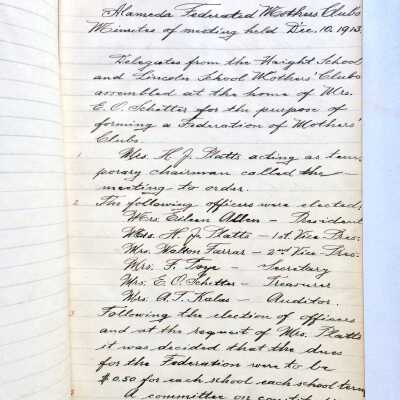 Alameda Federated Mothers Clubs
Minutes of meeting held Dec. 10, 1913.
Delegates from the Haight School
and Lincoln School Mothers' Clubs
assembled at the home of Mrs.
E. O. Schitter for the purpose of
forming a Federation of Mothers'
Clubs.
1 Mrs. H. J. Platts acting as tem-
porary chairman called the
meeting to order.
2 The following officers were elected,
Mrs. Eileen Allen – President
Mrs. H. J. Platts – 1st Vice Pres.
Mrs. Walton Farrar – 2nd Vice Pres.
Mrs. F. Toye – Secretary
Mrs. E. O. Schitter – Treasurer
Mrs. A. T. Kalas – Auditor.
3 Following the election of officers
and at the request of Mrs. Platts
it was decided that the dues
for the Federation were to be
$0.50 for each school each school term
A committee on